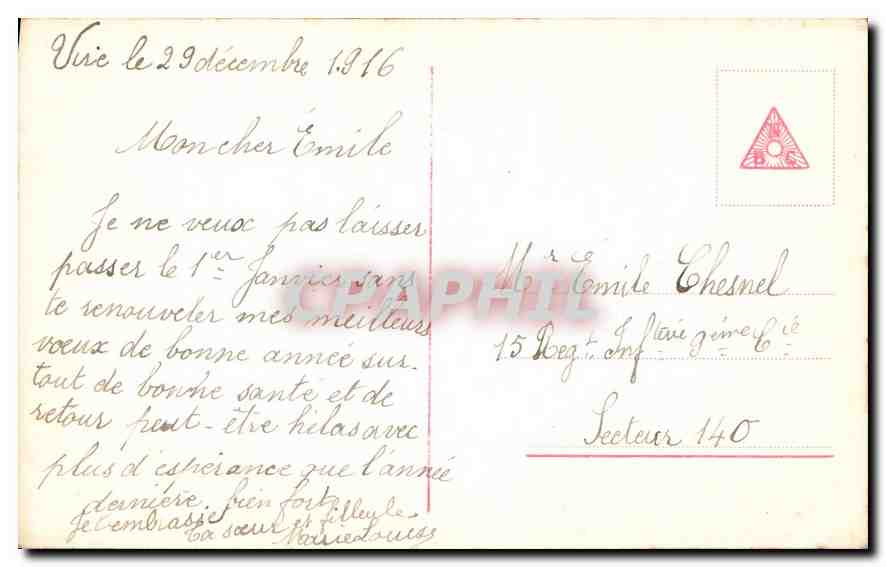 Vire le 29 décembre 1916
Mon cher Émile
Je ne veux pas laisser
passer le 1er Janvier sans
te renouveler mes meilleurs
vœux de bonne année sur-
tout de bonne santé et de
retour peut-être hélas avec
plus d'espérance que l'année
dernière. bien fort
Je t'embrasse
ta sœur et filleule
Marie Louise
N
B C
Mr Émile Chesnel
15 Regt. Inftérie 9éme Cie
Secteur 140
CPAPHIL